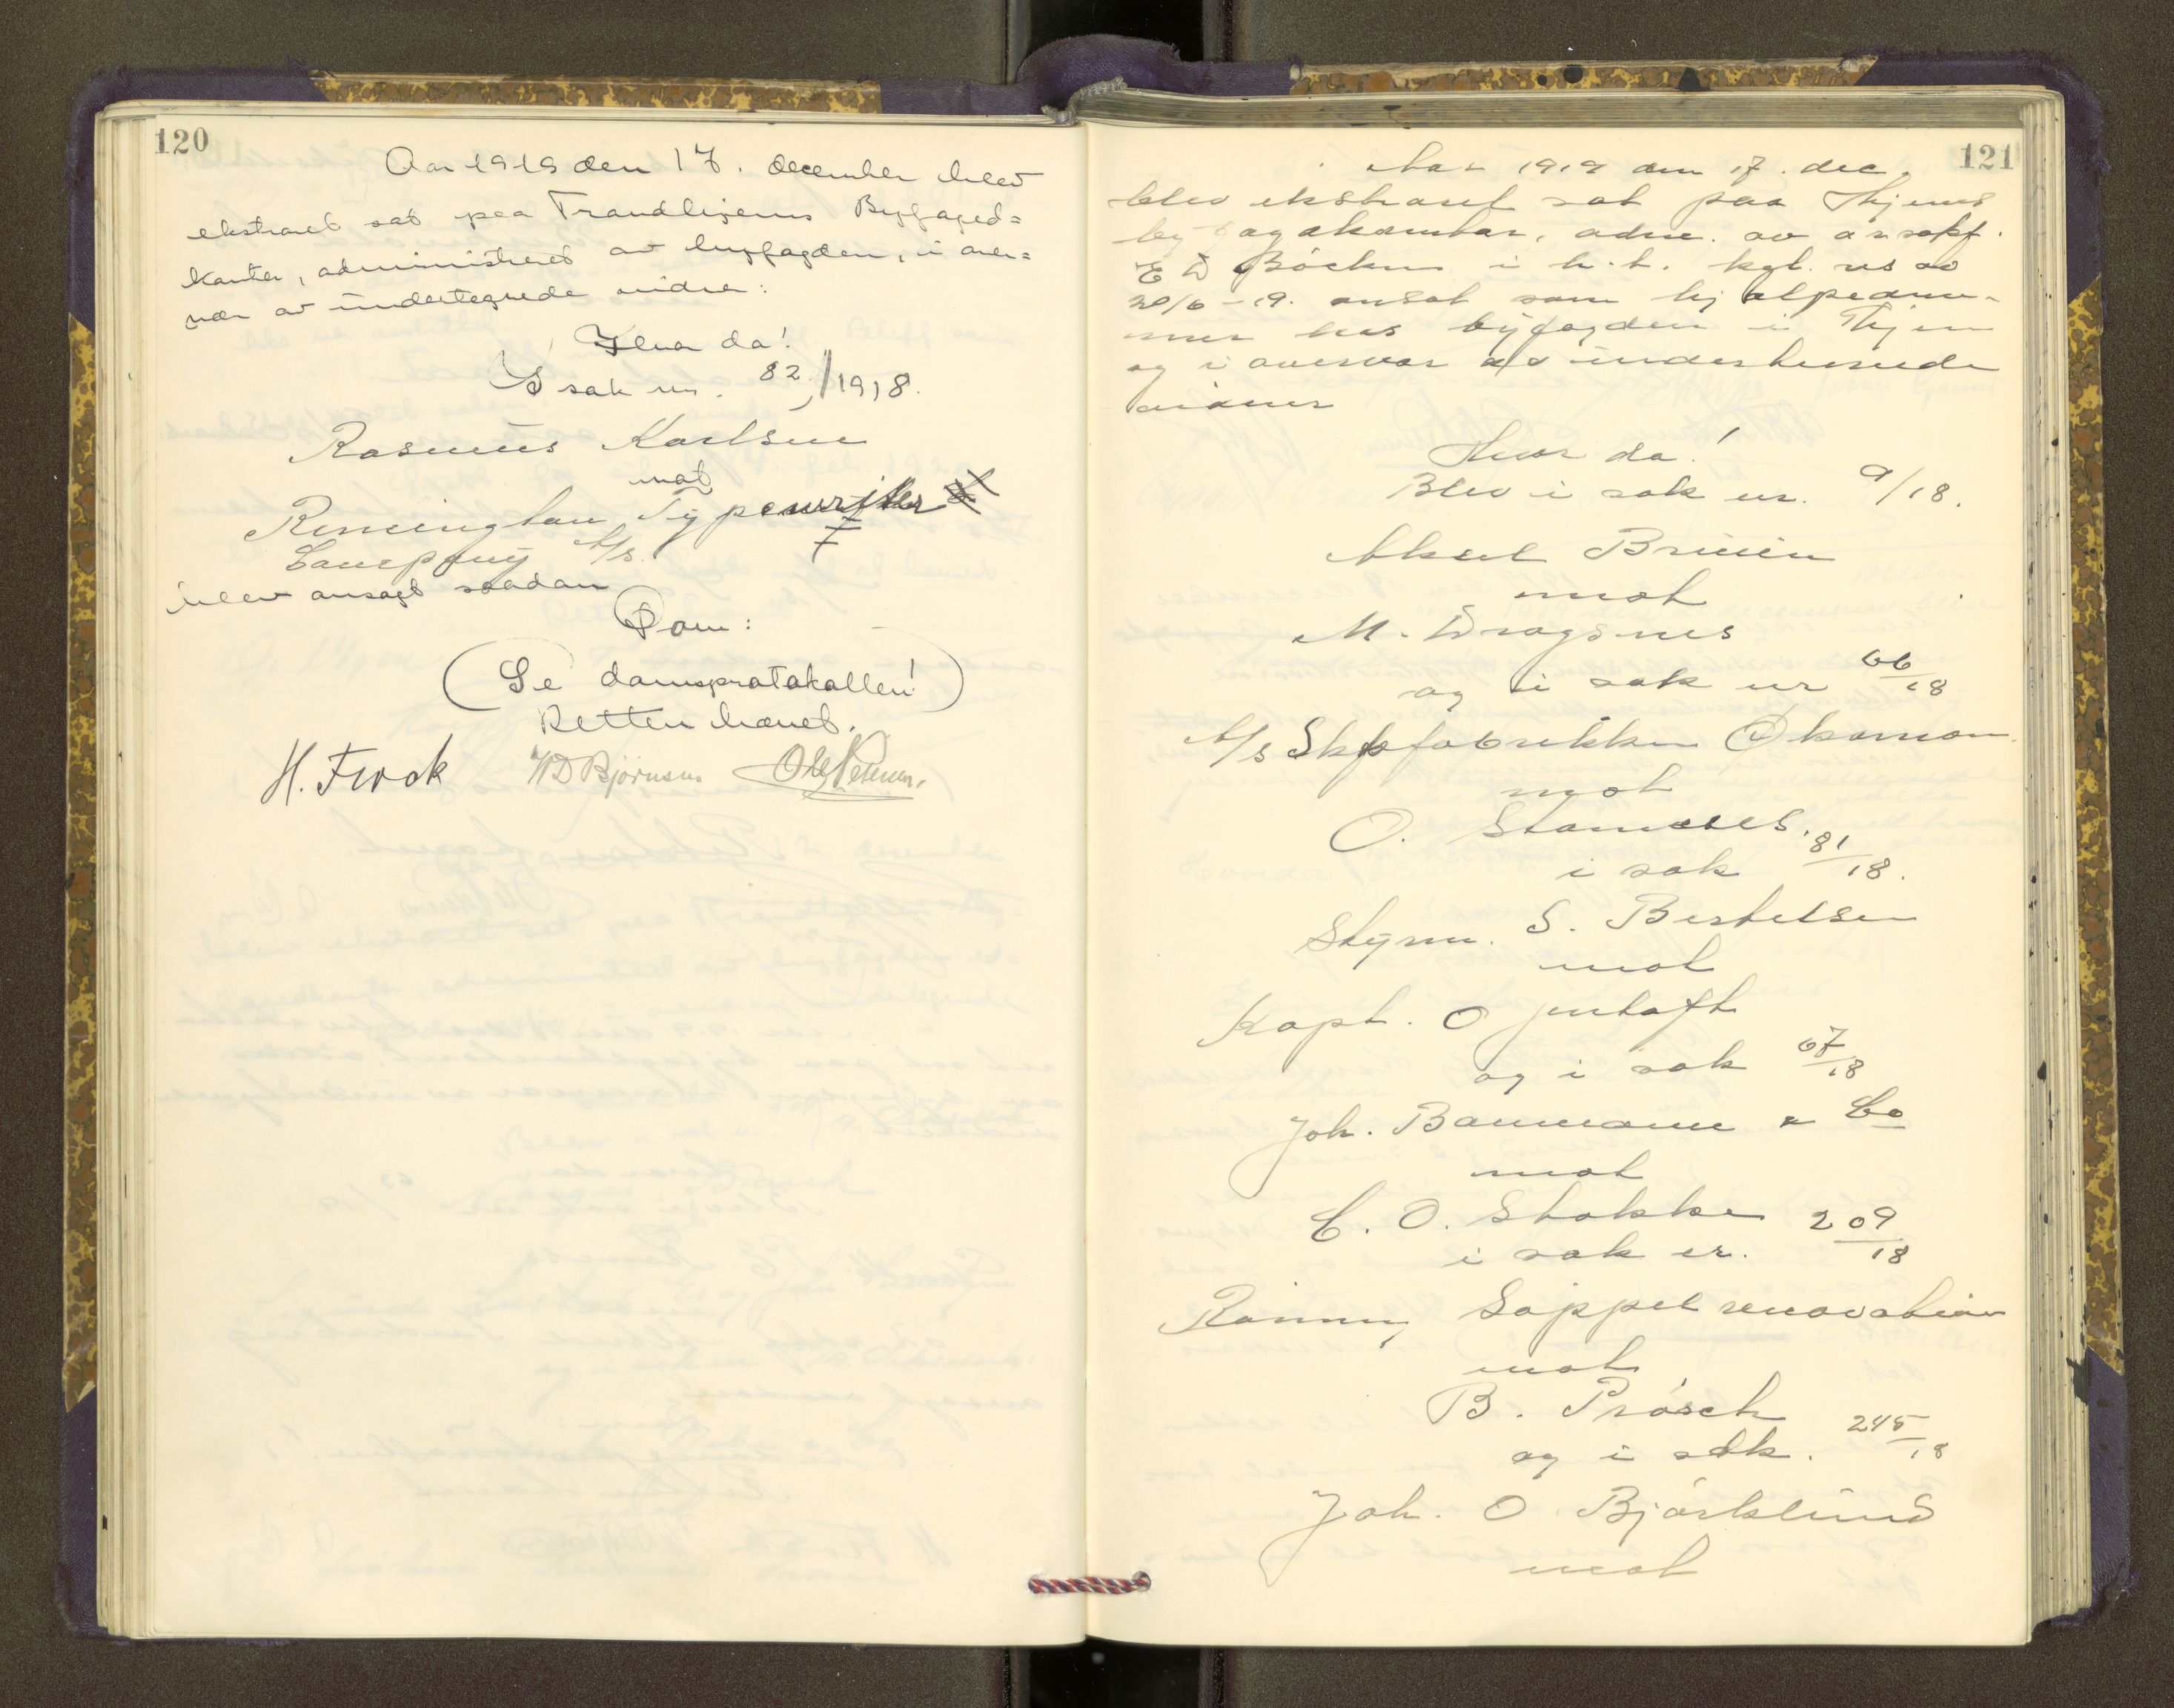 120
Aar 1919 den 17. december blev
ekstraret sat paa Trondhjems Byfoged=
kontor, administreret av byfogden, i over=
vær av undertegnede vidner:
Hvor da!
I sak nr. 82/1918.
Rasmus Karlsen
mot
Remington Typewriter
Company A/s.
blev avsagt saadan
Dom:
(Se domsprotokollen!)
Retten hævet.
H. Frook WD Bjørnsen Ole Petersen.
121
Aar 1919 den 17. dec.
blev ekstraret sat paa Thjems
byfogdkontor, adm. av
E D Böckm i h. t. kgl. res av
20/6 - 19. ansat som hjælpedom-
mer hos byfogden i Thjem
og i overvær av underskrevne
vidner
Hvor da!
Blev i sak nr. 9/18.
Aksel Bruun
mot
M. Dragsnes
og i sak nr 66/18
A/s Skofabrikken Økonom
mot
O. Stamnes.
i sak 81/18.
Styrm. S. Bertelsen
mot
Kapt. O Jentoft
og i sak 67/18
Joh. Baumann & Co
mot
C. O. Stokke
i sak nr. 209/18
Ranum, Søppel renovation
mot
B. Prösch
og i sak. 245/18
Joh. O Bjørklund
mot